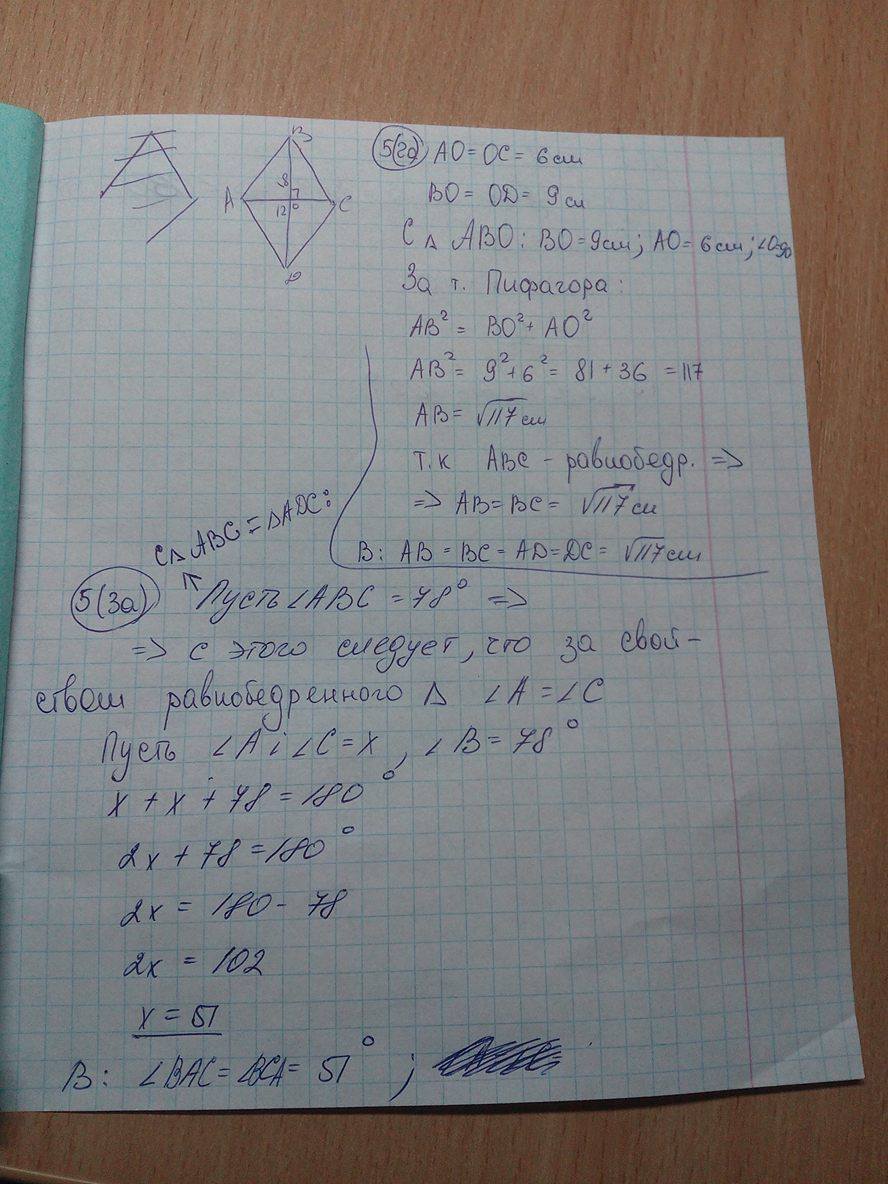 B
A
C
D
18
12
O
5(2д) AO = OC = 6 см
BO = OD = 9 см
С △ ABO: BO = 9см; AO = 6 см; ∠O=90
За т. Пифагора:
AB² = BO² + AO²
AB² = 9² + 6² = 81 + 36 = 117
AB = √117 см
т.к ABC - равнобедр. =>
=> AB = BC = √117 см
В: AB = BC = AD = DC = √117 см
С△ ABC = △ADC:
5(3а) Пусть ∠ABC = 78° =>
=> с этого следует, что за свой-
ством равнобедренного △ ∠A = ∠C
Пусть ∠A i ∠C = x, ∠B = 78°
x + x + 78 = 180°
2x + 78 = 180°
2x = 180 - 78
2x = 102
x = 51
В: ∠BAC = ∠BCA = 51° ;